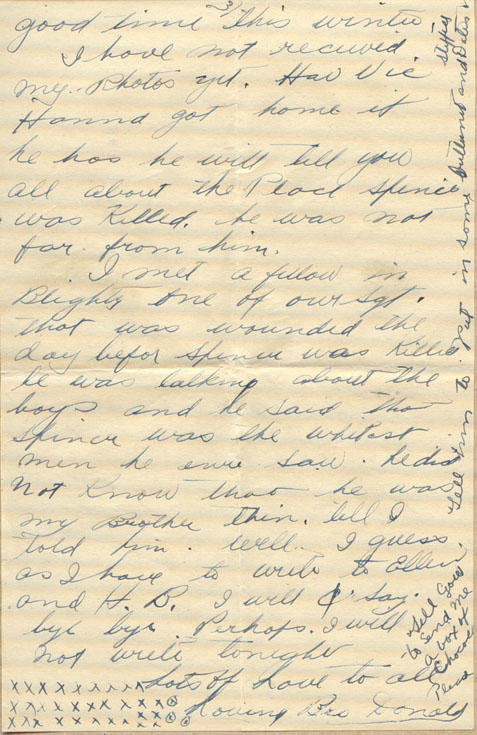 3)
good time this winter
I have not recuvid
my Photos yet. Hav Vic
Hanna got home if
he has he will tell you
all about the Place Spence
was Killed. he was not
far from him.
I met a fellow in
Blighty one of our Sgt.
that was wounded the
day befor Spence was Killed
he was talking about the
boys and he said that
Spence was the whitest
men he evre saw. he did
not Know that he was
my Brother then. till I
told him. Well. I guess
as I have to write to Ellen.
and H. B. I will say.
bye bye. Perhaps. I will
not write tonight
Lots of Love to all
xxxxxxxxx
xxxxxxxxx
xxxxxxxxx
Loving Bro Donald
Tell him to Put in some butternut and Dates
Tell
to send me
a box of
Chocol
Pleas